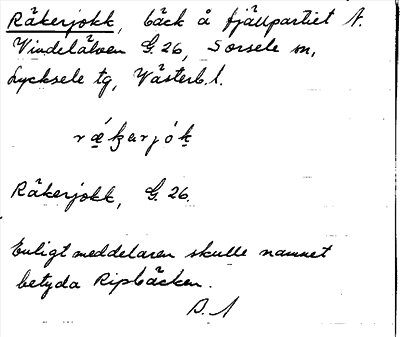 Räkerjokk, bäck å fjällpartiet N.
Vindelälven G. 26, Sorsele sn,
Lycksele tg, Västerb. l.
Räkerjokk, G. 26.
Enligt meddelaren skulle namnet
betyda Ripbäcken.